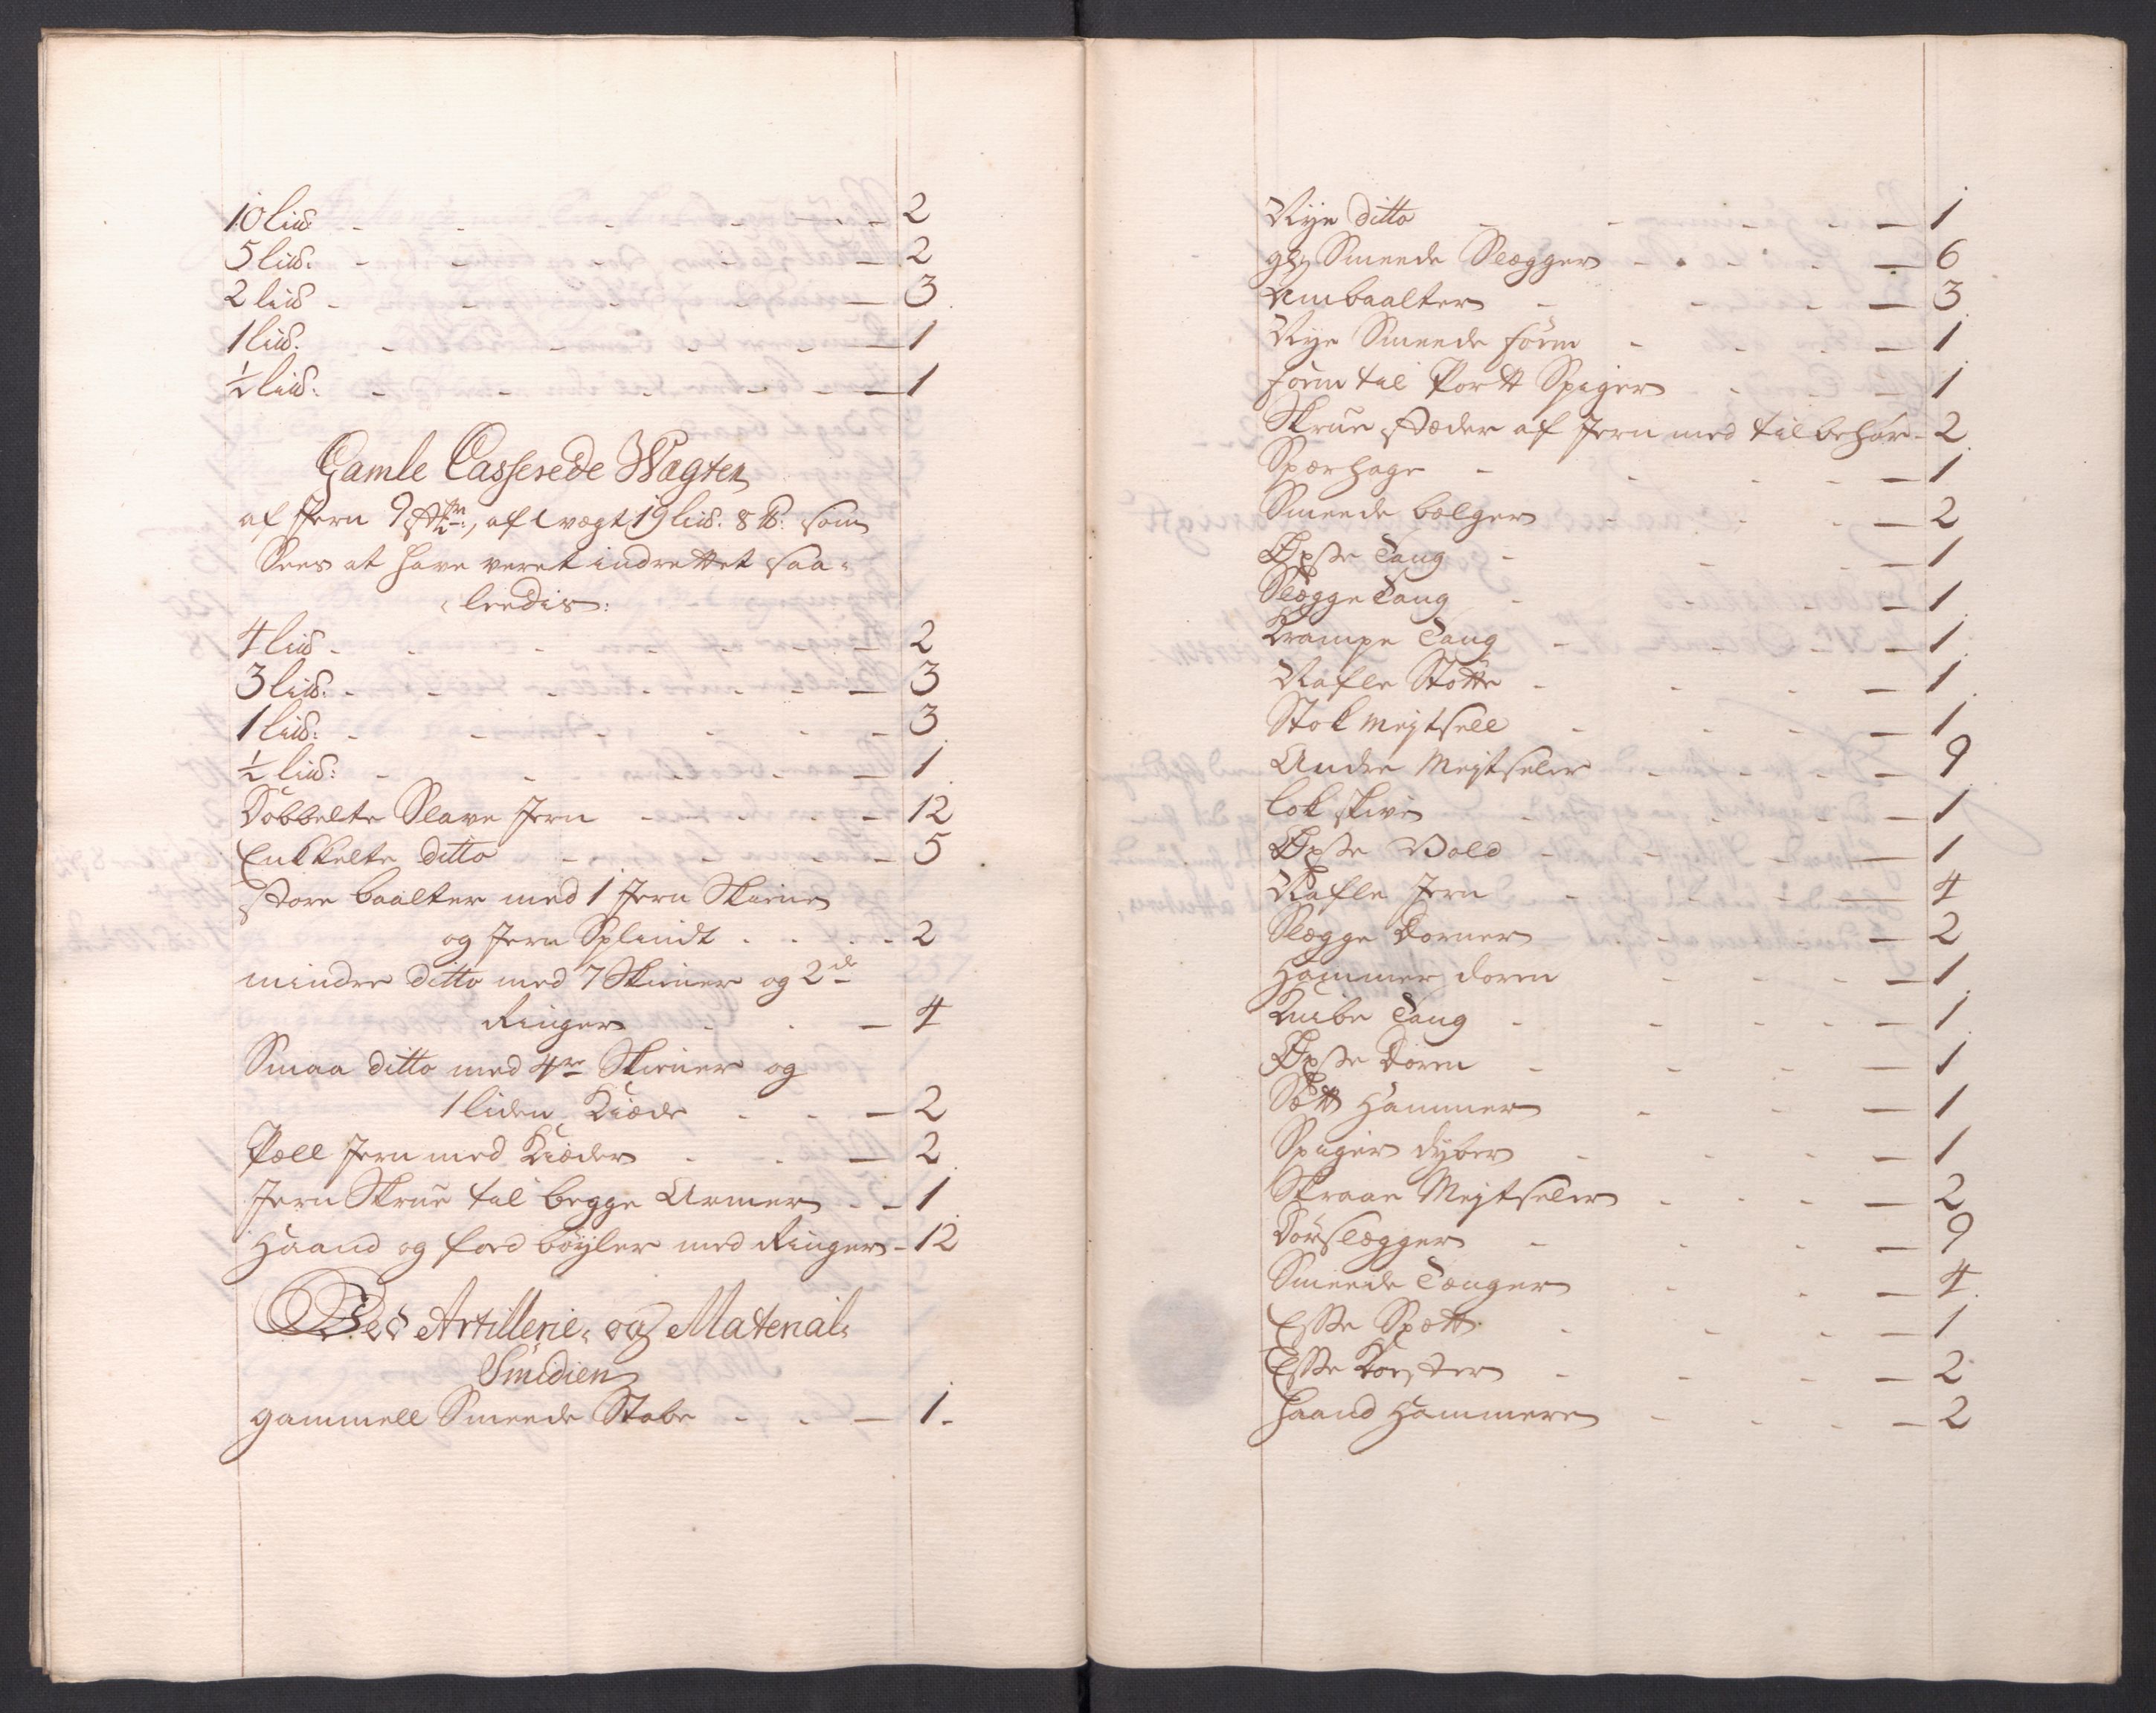 10 lis℔. - - - - - 2
5 lis℔. - - - - 2
2 lis℔ - - - - - 3.
1 lis℔. - - - - 1
½ lis℔. - - - - - - 1
Gamle Casserede Wagter
af Jern 9 st:, af vegt 19 lis℔. 8 ℔: som
Sees at have veret indrettet saa-
leedis:
4 lis℔ - - - - - - 2
3 lis℔. - - - - - - 3
1 lis℔. - - - - - 3
½ lis℔: - - - - - 1.
Dobbelte Slave Jern - - - - 12
Enkkelte ditto - - - - 5
Store baalter med 1 Jern Skinne
og Jern Splindt . . . - 2
mindre ditto med 7 Skinner og 2de
Ringer - - - 4
Smaa ditto med 4re Skinner og
1 liden Kiæde - - - 2
Pæll Jern med Kiæder - - - 2.
Jern Skrue til begge Armer - - 1.
Haand og foed bøyler med Ringer - 12
Ved Artillerie- og Material-
Smidien
gammell Smeede Stabe - - - 1.
Nye ditto - - - - 1
gl: Smeede Slægger - - - - 6
Ambaalter - - - - 3
Nye Smeede form - - - - 1
form til Portt Spiger - - - 1
Skrue Stæder af Jern med tilbehør - 2
Spærhage - - - - 1
Smeede bælger - - - 2
Øxse Tang - - - 1
Slægge Tang - - - - 1.
Krampe Tang - - - - 1.
Nafle Støtte - - - - 1.
Stok Mejtsell - - - - 1
Andre Mejtseler - - - - 9
Lok skive - - - - 1
Øxse Bold - - - - 1
Nafle Jern - - - - 4
Slægge Dorner - - - 2
Hammer doren - - - - 1
Knibe Tang - - - - 1
Øxse Doren - - - - 1
Sætt Hammer - - - 1
Spiger dyber - - - - 1
Skraae Mejtseler - - - - 2
Dørslægger - - - - 9
Smeede Tænger - - - 4.
Esse Spætt - - - - 1
Esse Korster - - - - 2
Haand Hammere - - - - 2